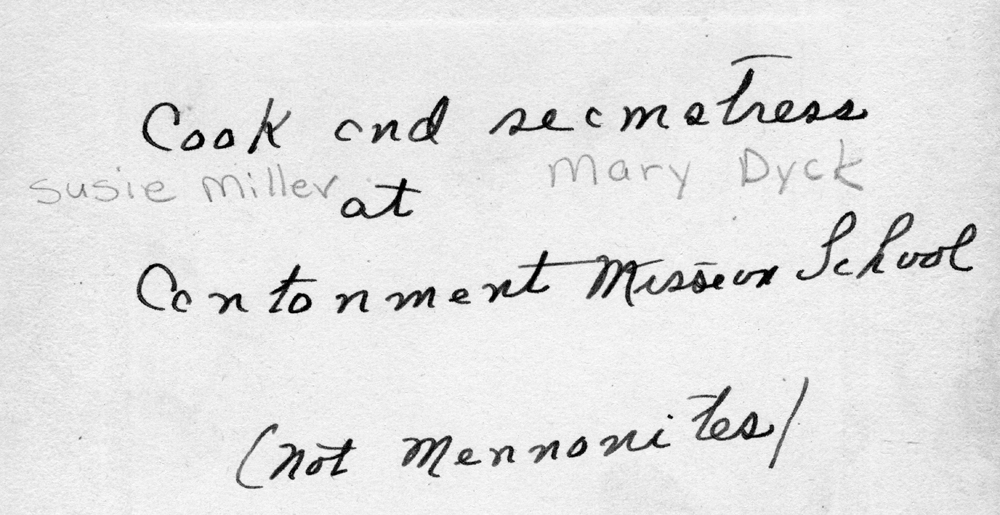 Cook and seamstress
Susie Miller Mary Dyck
at
Cantonment Mission School
(not Mennonites)